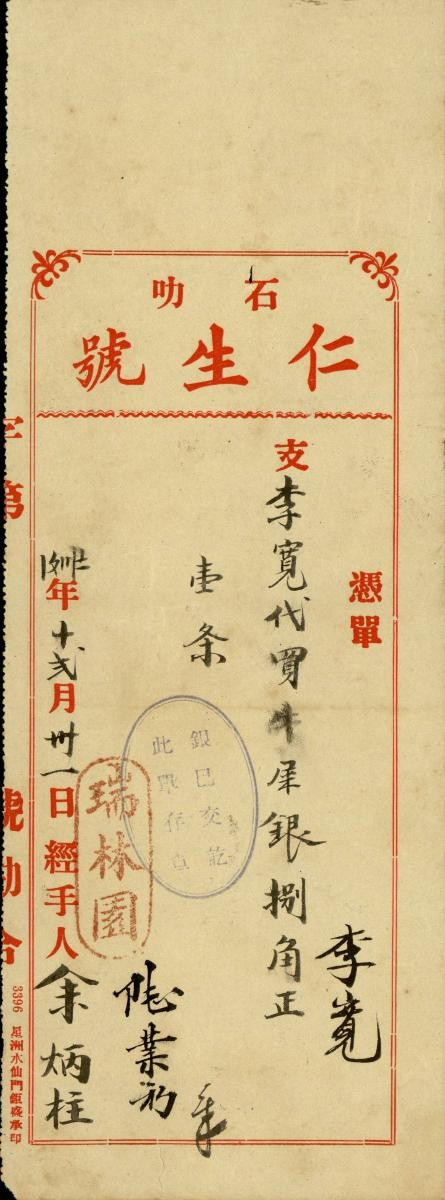 石叻
仁生號
憑單
支李寬代買牛尾銀捌角正
李寬
壹条
銀已交訖
此單存查
瑞林園
年十弍月卅一日經手人余炳柱
字第
號勘合
3396 星洲水仙門鉅盛承印